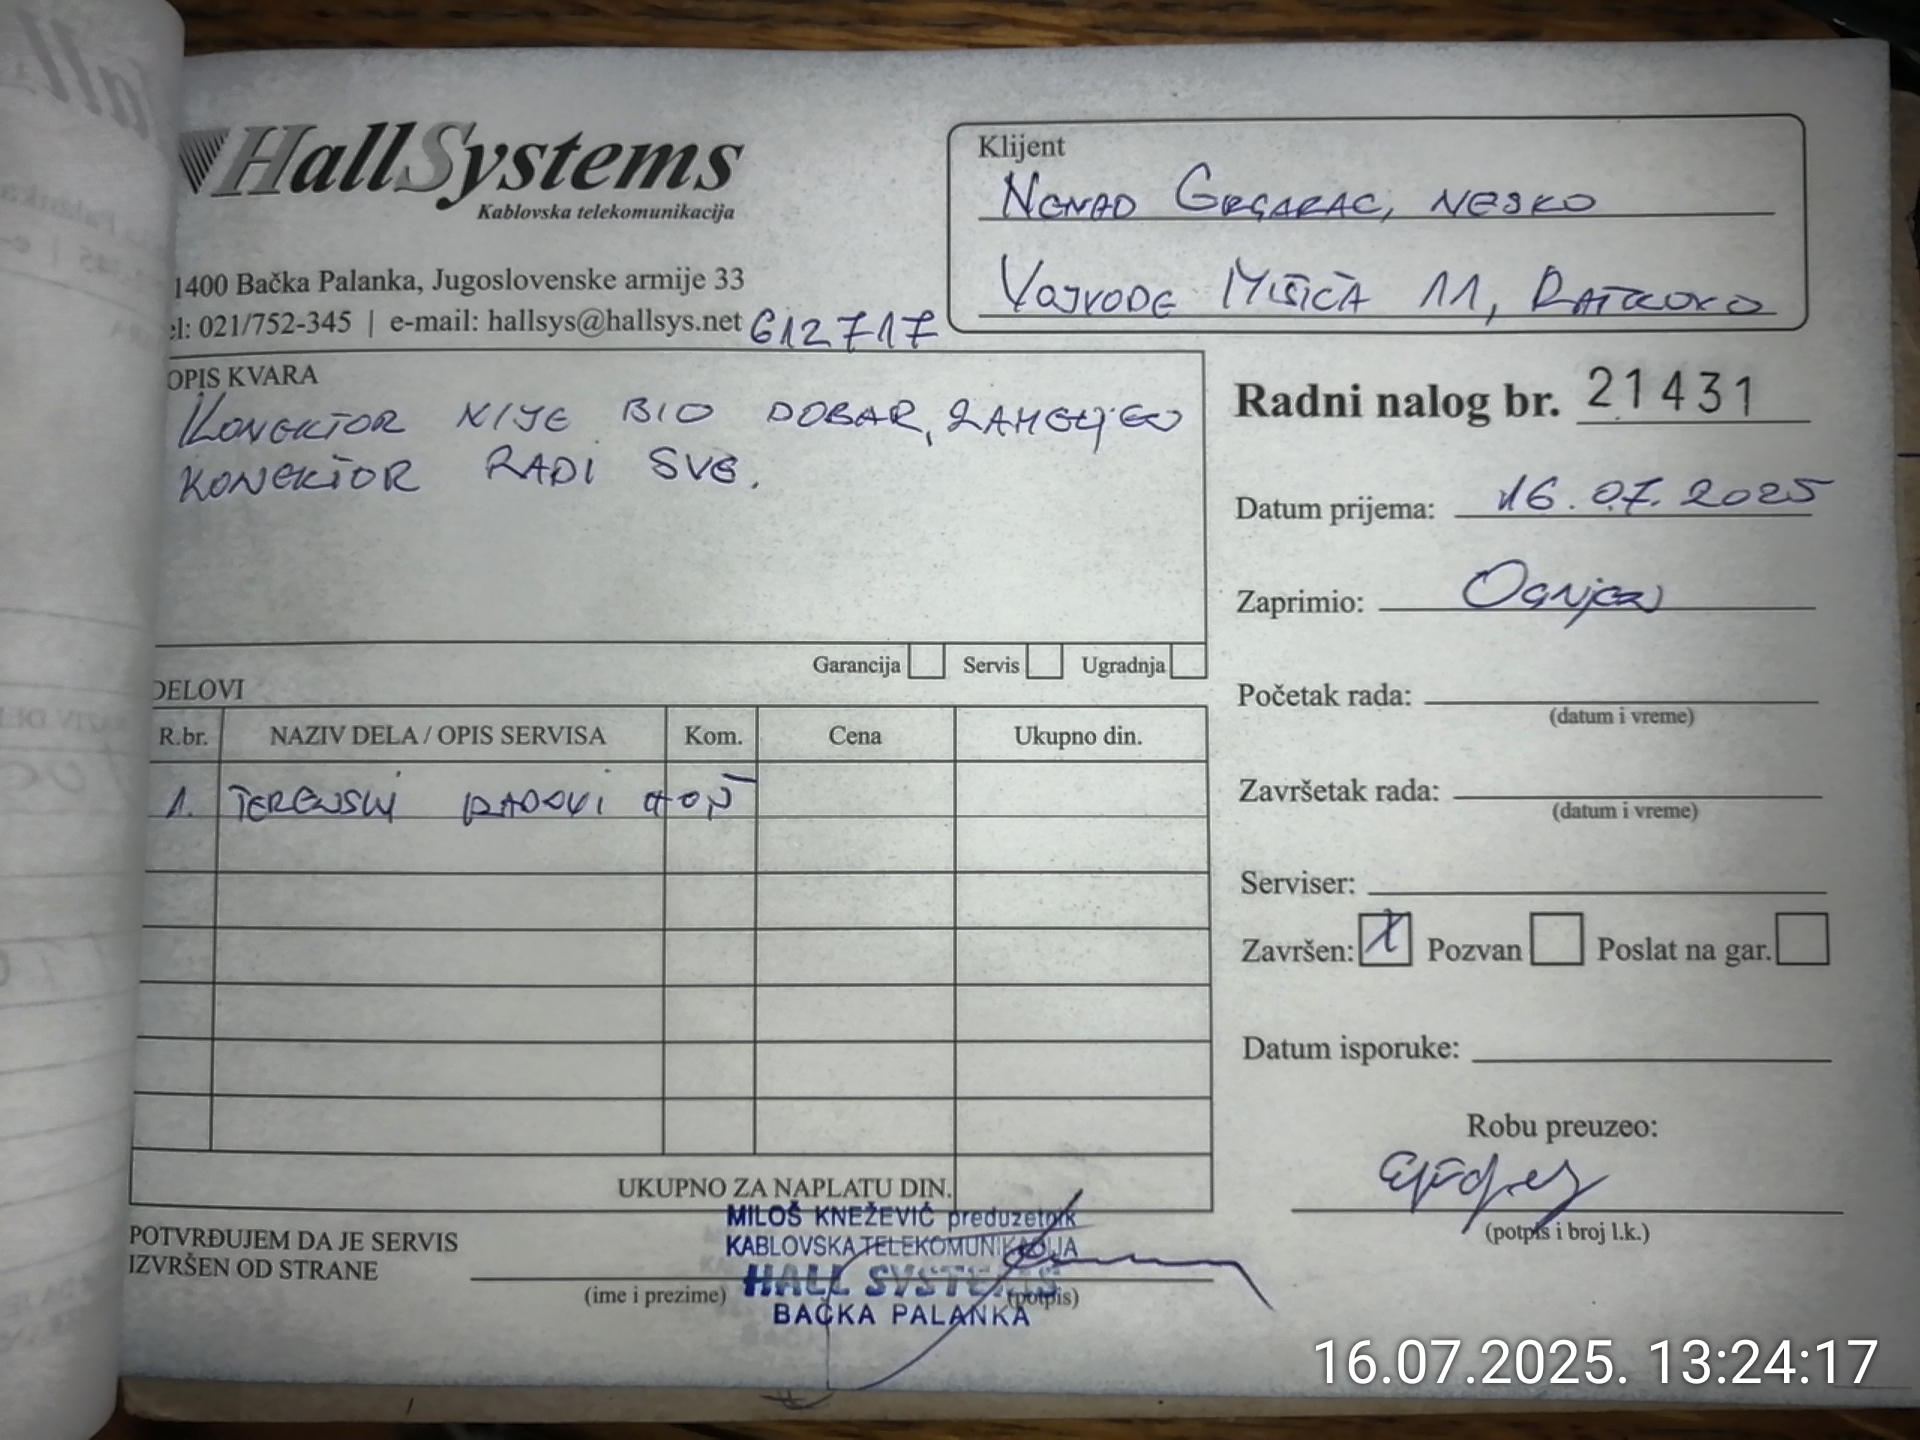 HallSystems
Kablovska telekomunikacija
1400 Bačka Palanka, Jugoslovenske armije 33
el: 021/752-345 | e-mail: hallsys@hallsys.net 612717
Klijent
NENAD GRGARAC, NESKO
VOJVODE MIŠIĆA 11, RATKOVO
OPIS KVARA
KONEKTOR NIJE BIO DOBAR, ZAMENJEN
KONEKTOR RADI SVE.
Garancija Servis Ugradnja
Radni nalog br. 21431
Datum prijema: 16.07.2025
Zaprimio: OGNJEN
Početak rada:
(datum i vreme)
Završetak rada:
(datum i vreme)
Serviser:
Završen: X Pozvan Poslat na gar.
Datum isporuke:
Robu preuzeo:
(potpis i broj l.k.)
DELOVI
R.br. NAZIV DELA / OPIS SERVISA Kom. Cena Ukupno din.
1. TERENSKI RADOVI
UKUPNO ZA NAPLATU DIN.
POTVRĐUJEM DA JE SERVIS
IZVRŠEN OD STRANE
(ime i prezime) (potpis)
MILOŠ KNEŽEVIĆ preduzetnik
KABLOVSKA TELEKOMUNIKACIJA
HALL SYSTEMS
BAČKA PALANKA
16.07.2025. 13:24:17